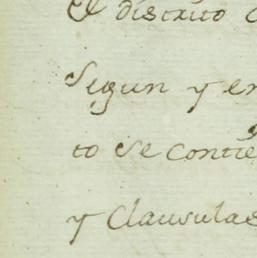 El distrito
Segun y en
to se contie
y Clausulas